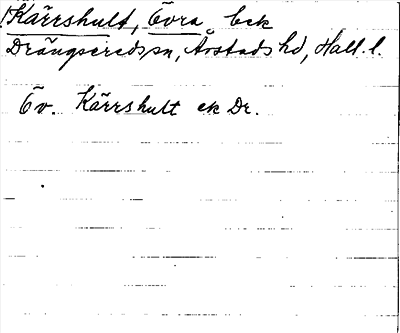 Kärrshult, Övra Eck
Drängsereds sn, Årstads hd, Hall. l.
Öv. Kärrshult ek Dr.